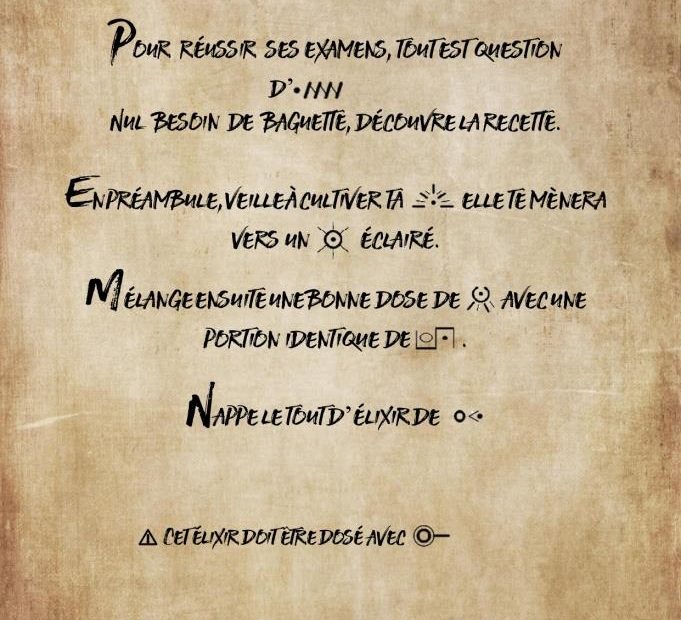 Pour réussir ses examens, tout est question
d'
Nul besoin de baguette, découvre la recette.
En préambule, veille à cultiver ta elle te mènera
vers un éclairé.
Mélange ensuite une bonne dose de avec une
portion identique de .
Nappe le tout d'élixir de
⚠ Cet élixir doit être dosé avec